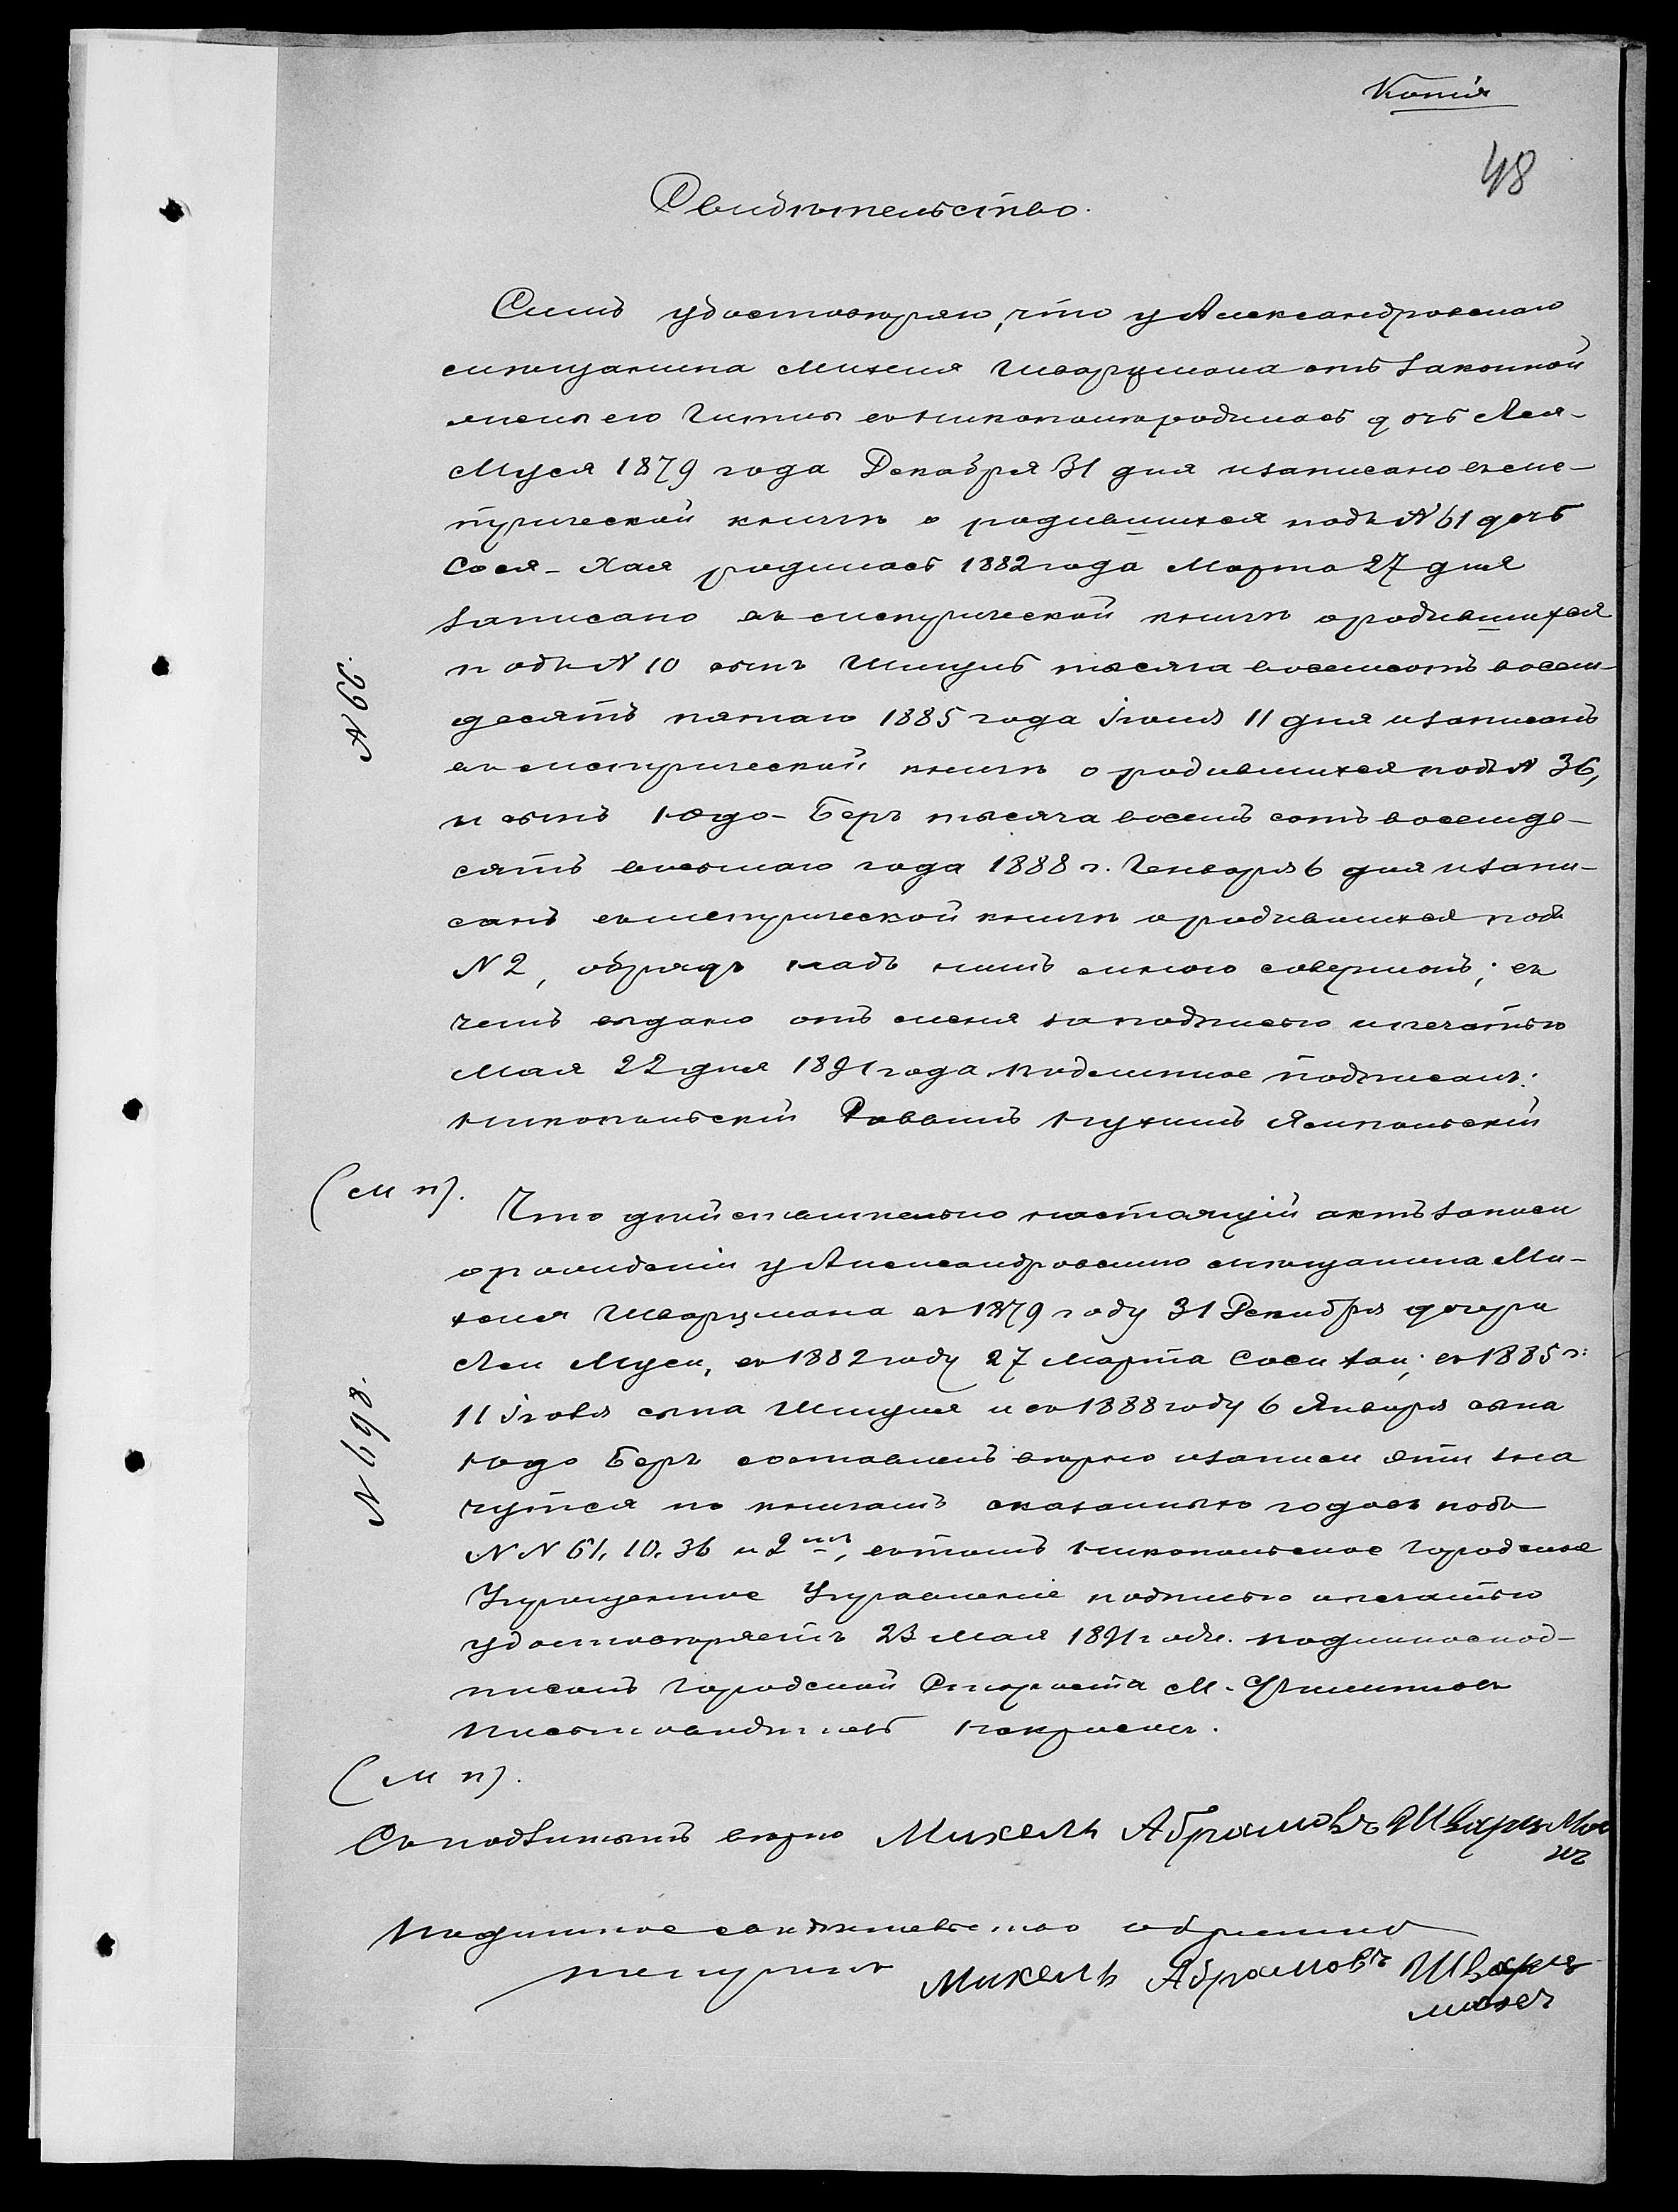 Копія
48
Свидѣтельство.
Симъ удостовѣряю, что у Александровскаго
мѣщанина Михеля Шварцмана отъ законной
жены его Гитли въ Никополѣ родилась дочь Лея-
Муся 1879 года Декабря 31 дня и записано въ ме-
трической книгѣ о родившихся подъ № 61 дочь
Сося-Хая родилась 1882 года Марта 27 дня
записано въ метрической книгѣ о родившихся
подъ № 10 сынъ Шмуль тысяча восемьсотъ восем-
десятъ пятаго 1885 года Іюля 11 дня и записанъ
въ метрической книгѣ о родившихся подъ № 36,
и сынъ Юдо-Беръ тысяча восемь сотъ восемде-
сятъ восьмаго года 1888 г. Генваря 6 дня и запи-
санъ въ метрической книгѣ о родившихся подъ
№ 2, обрядъ надъ нимъ мною совершонъ; въ
чемъ выдано отъ меня за подписью и печатью
Мая 22 дня 1891 года. Подлинное подписалъ:
Никопольскій Раввинъ Нухимъ Ямпольскій
№ 66.
(М п).
Что дѣйствительно настоящій актъ записи
о рожденіи у Александровскаго мѣщанина Ми-
хеля Шварцмана въ 1879 году 31 Декабря дочери
Леи Муси, въ 1882 году 27 Марта Соси Хаи; въ 1885 г:
11 Іюля сына Шмуля и въ 1888 году 6 Января сына
Юдо Беръ составленъ вѣрно и записи эти зна
чутся по книгамъ сказанныхъ годовъ подъ
№№ 61. 10. 36 и 2, въ томъ Никопольское Городское
Упрощенное Управленіе подписью и печатью
удостовѣряетъ 23 Мая 1891 года. Подлинное под-
писалъ Городской Староста М. Филипповъ
Письмоводитель Некрасовъ.
№ 698.
(М п).
Съ подлиннымъ вѣрно Михель Абрамовъ Шварцмо
нъ
Подлинное свидѣтельство обратно
получилъ Михель Абрамовъ Шварц
манъ